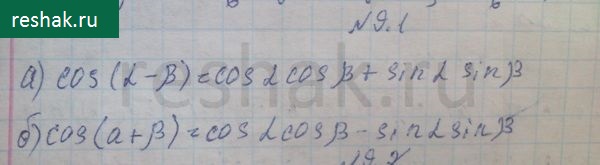 reshak.ru
№9.1
а) cos(α-β)=cosαcosβ+sinα sinβ
б) cos(a+β)=cosαcosβ-sinαsinβ
№9.2